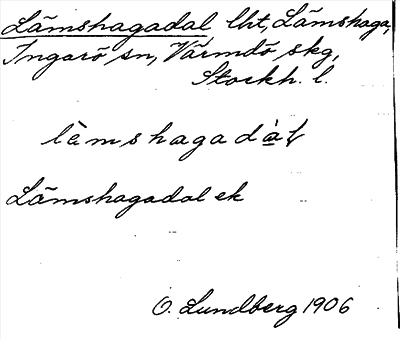 Lämshagadal lht, Lämshaga,
Ingarö sn, Värmdö skg,
Stockh. l.
lὰmshagadὰl
Lämshagadal ek
O. Lundberg 1906